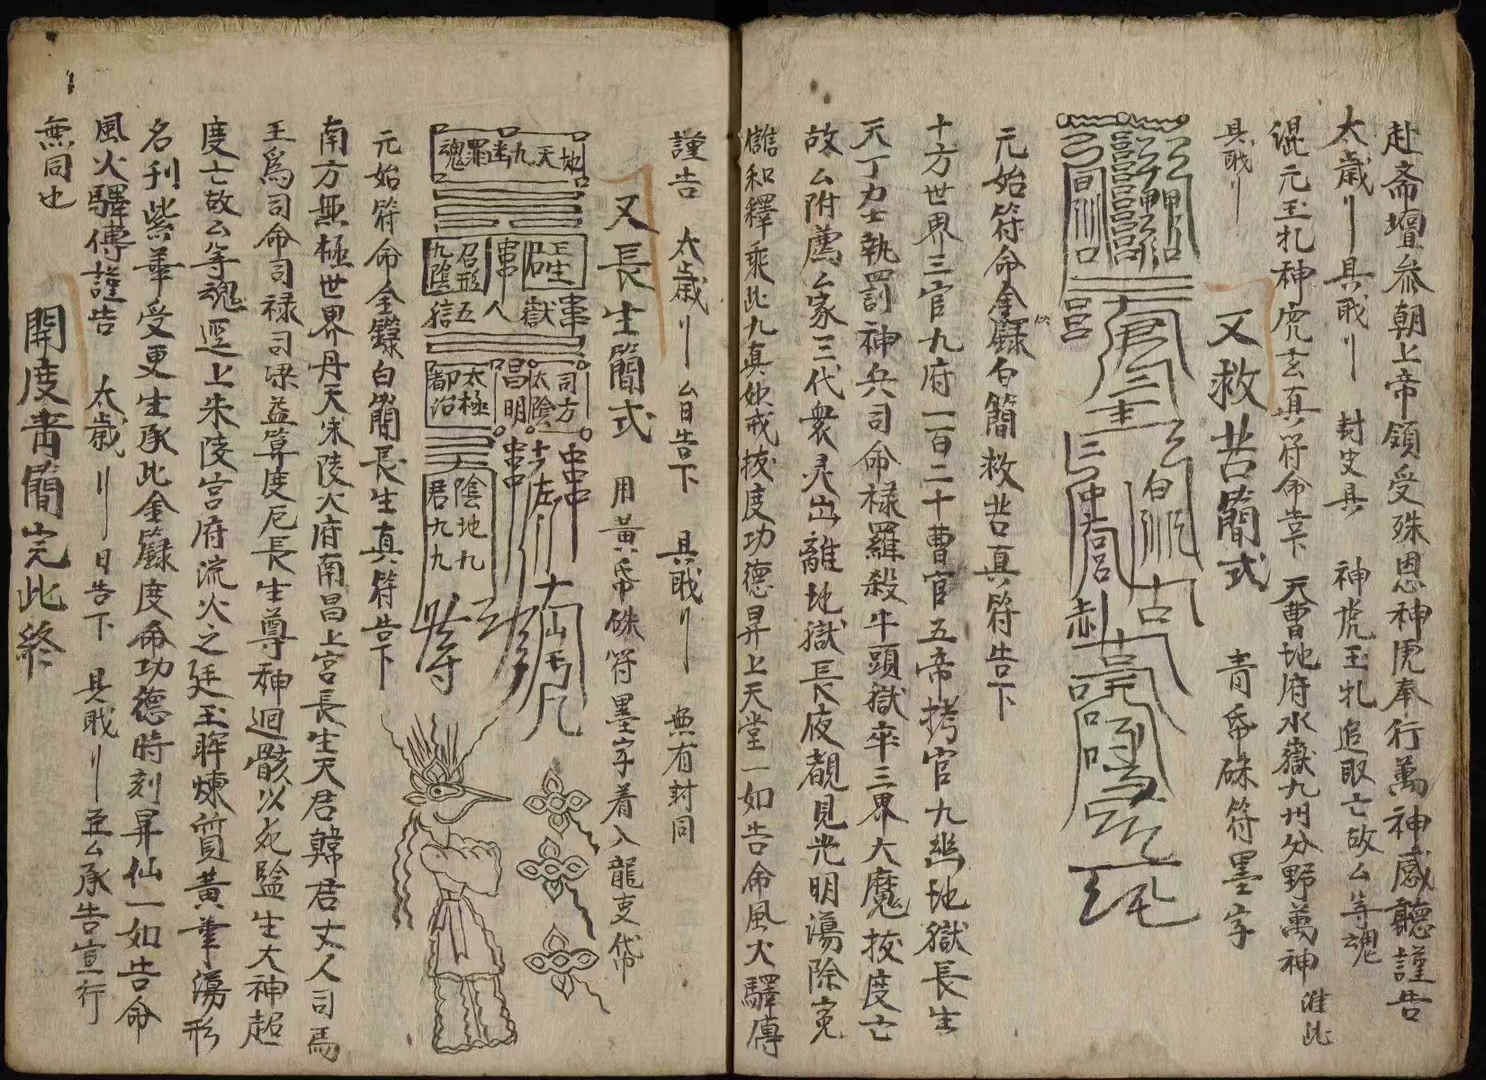 赴斋壇叅朝上帝領受殊恩神虎奉行萬神咸聽謹告
太歲〢具戢〢 封史具 神虎玉札追取亡故厶等魂
混元玉札神虎玄真符命告下 天曹地府水嶽九州分野萬神 准此
具戢〢
又救苦簡式 青帋硃符墨字
元始符命金籙白簡救苦真符告下
十方世界三官九府一百二十曹官五帝拷官九幽地獄長生
天丁力士執罰神兵司命祿羅殺牛頭獄卒三界大魔拔度亡
故厶附薦厶家三代衆灵出離地獄長夜覩見光明蕩除寃
讎和釋乘此九真妙戒拔度功德昇上天堂一如告命風火驛傳
謹告 太歲〢厶日告下 具戢〢 無有封同
又長生簡式 用黃帋硃符墨字着入龍吏帒
地天九罪魂
長生
召形五
九陰
獄
人
司方
太陰
昌明
太極
都治
陰地九
君九九
元始符命金籙白簡長生真符告下
南方無極世界丹天朱陵火府南昌上宮長生天君韓君丈人司馬
王爲司命司禄司 益算度厄長生尊神迴骸以死監生大神超
度亡故厶等魂逕上朱陵宮府流火之廷玉眸煉質黃華蕩形
名刊紫華受更生承此金籙度命功德時刻昇仙一如告命
風火驛傳謹告 太歲〢日告下 具戢〢 厶承告宣行
無同也
開度青簡完此終